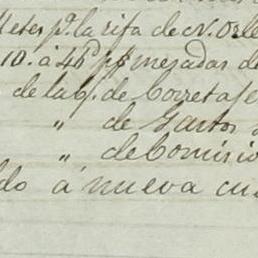 letes pª la rifa de N. Orle
10. à 46 p$ mesadas d
de la q. de Corretaje
" de Gastos
" de Comisio
do á nueva cu